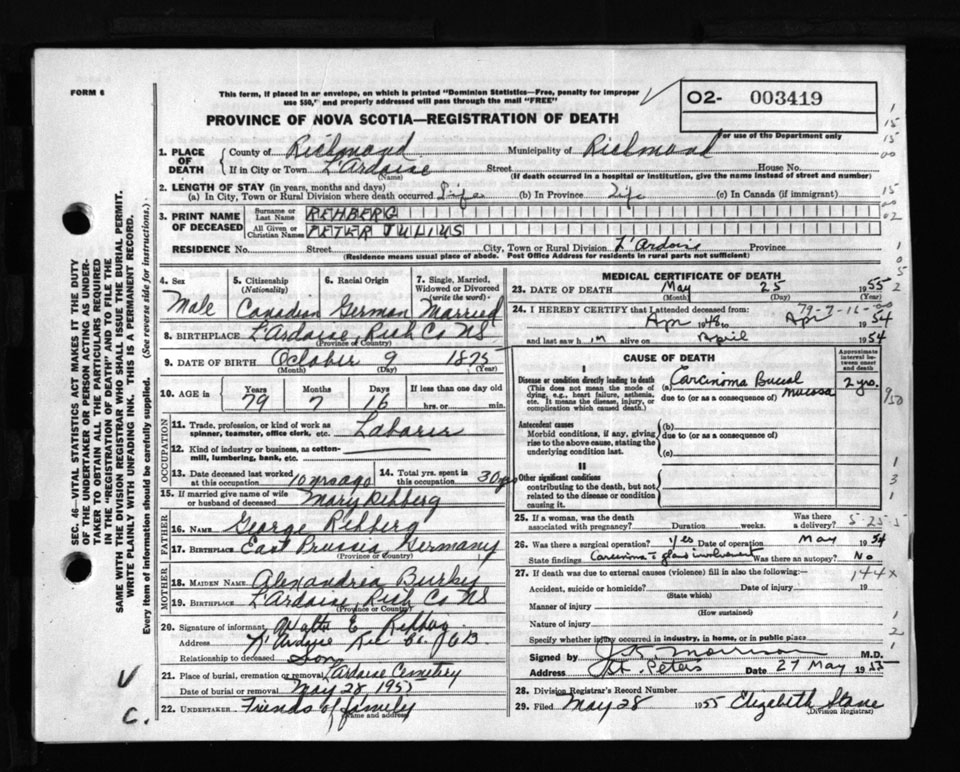 FORM 6
This form, if placed in an envelope, on which is printed "Dominion Statistics—Free, penalty for improper
use $50," and properly addressed will pass through the mail "FREE"
PROVINCE OF NOVA SCOTIA—REGISTRATION OF DEATH
O2- 003419
For use of the Department only
SEC. 46—VITAL STATISTICS ACT MAKES IT THE DUTY
OF THE UNDERTAKER OR PERSON ACTING AS UNDER-
TAKER TO OBTAIN ALL THE PARTICULARS REQUIRED
IN THE "REGISTRATION OF DEATH" AND TO FILE THE
SAME WITH THE DIVISION REGISTRAR WHO SHALL ISSUE THE BURIAL PERMIT.
WRITE PLAINLY WITH UNFADING INK. THIS IS A PERMANENT RECORD.
Every item of information should be carefully supplied. (See reverse side for instructions.)
1. PLACE OF DEATH
County of Richmond Municipality of Richmond
If in City or Town L'Ardoise Street House No.
(Name) (If death occurred in a hospital or institution, give the name instead of street and number)
2. LENGTH OF STAY (in years, months and days)
(a) In City, Town or Rural Division where death occurred Life (b) In Province Life (c) In Canada (if immigrant)
3. PRINT NAME OF DECEASED
Surname or Last Name REHBERG
All Given or Christian Names PETER JULIUS
RESIDENCE No. Street City, Town or Rural Division L'Ardoise Province
(Residence means usual place of abode. Post Office Address for residents in rural parts not sufficient)
4. Sex 5. Citizenship (Nationality) 6. Racial Origin 7. Single, Married, Widowed or Divorced (write the word)
Male Canadian German Married
8. BIRTHPLACE L'Ardoise Rich Co NS
(Province or Country)
9. DATE OF BIRTH October 9 1875
(Month) (Day) (Year)
10. AGE in Years Months Days If less than one day old
79 7 16 hrs. or min.
OCCUPATION
11. Trade, profession, or kind of work as spinner, teamster, office clerk, etc. Laborer
12. Kind of industry or business, as cotton-mill, lumbering, bank, etc.
13. Date deceased last worked at this occupation 10 yrs ago 14. Total yrs. spent in this occupation 30 yrs
15. If married give name of wife or husband of deceased Mary Rehberg
FATHER
16. NAME George Rehberg
17. BIRTHPLACE East Prussia Germany
(Province or Country)
MOTHER
18. MAIDEN NAME Alexandria Burky
19. BIRTHPLACE L'Ardoise Rich Co NS
(Province or Country)
20. Signature of informant Walter E. Rehberg
Address L'Ardoise
Relationship to deceased Son
21. Place of burial, cremation or removal L'Ardoise Cemetery
Date of burial or removal May 28 1955
22. UNDERTAKER Friends of family
(Name and address)
V
C.
MEDICAL CERTIFICATE OF DEATH
23. DATE OF DEATH May 25 1955
(Month) (Day) (Year)
24. I HEREBY CERTIFY that I attended deceased from 79-7-16
Apr 1948 to Apr 1954
and last saw him alive on April 1954
CAUSE OF DEATH
Approximate interval between onset and death
I
Disease or condition directly leading to death (a) Carcinoma Buccal mucosa 2 yrs.
(This does not mean the mode of dying, e.g., heart failure, asthenia, etc. It means the disease, injury, or complication which caused death.) due to (or as a consequence of)
Antecedent causes (b)
Morbid conditions, if any, giving rise to the above cause, stating the underlying condition last. due to (or as a consequence of)
(c)
II
Other significant conditions
contributing to the death, but not related to the disease or condition causing it.
25. If a woman, was the death associated with pregnancy? Duration weeks. Was there a delivery?
5-25-5
26. Was there a surgical operation? yes Date of operation May 1954
State findings Carcinoma c gland involvement Was there an autopsy? No
27. If death was due to external causes (violence) fill in also the following:— 144x
Accident, suicide or homicide? Date of injury 19
(State which)
Manner of injury
(How sustained)
Nature of injury
Specify whether injury occurred in industry, in home, or in public place
Signed by Morrison M.D.
Address St. Peters Date 27 May 1955
28. Division Registrar's Record Number
29. Filed May 28 1955 Elizabeth Stone
(Division Registrar)